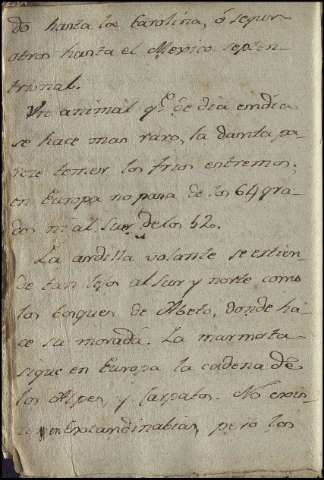 do hasta la Carolina, ó segun
otros hasta el Mexico septen-
trional.
Un animal q.e de dia en dia
se hace mas raro, la danta pa
rece temer los frios estremos;
en Europa no pasa de los 64 gra-
dos ni al Sur de los 52.
La ardilla volante se estien
de tan lejos al sur y norte como
los bosques de Abeto, donde ha
ce su morada. La marmota
sigue en Europa la cadena de
los Alpes y Carpatos. No exis
te en Escandinabia, pero los